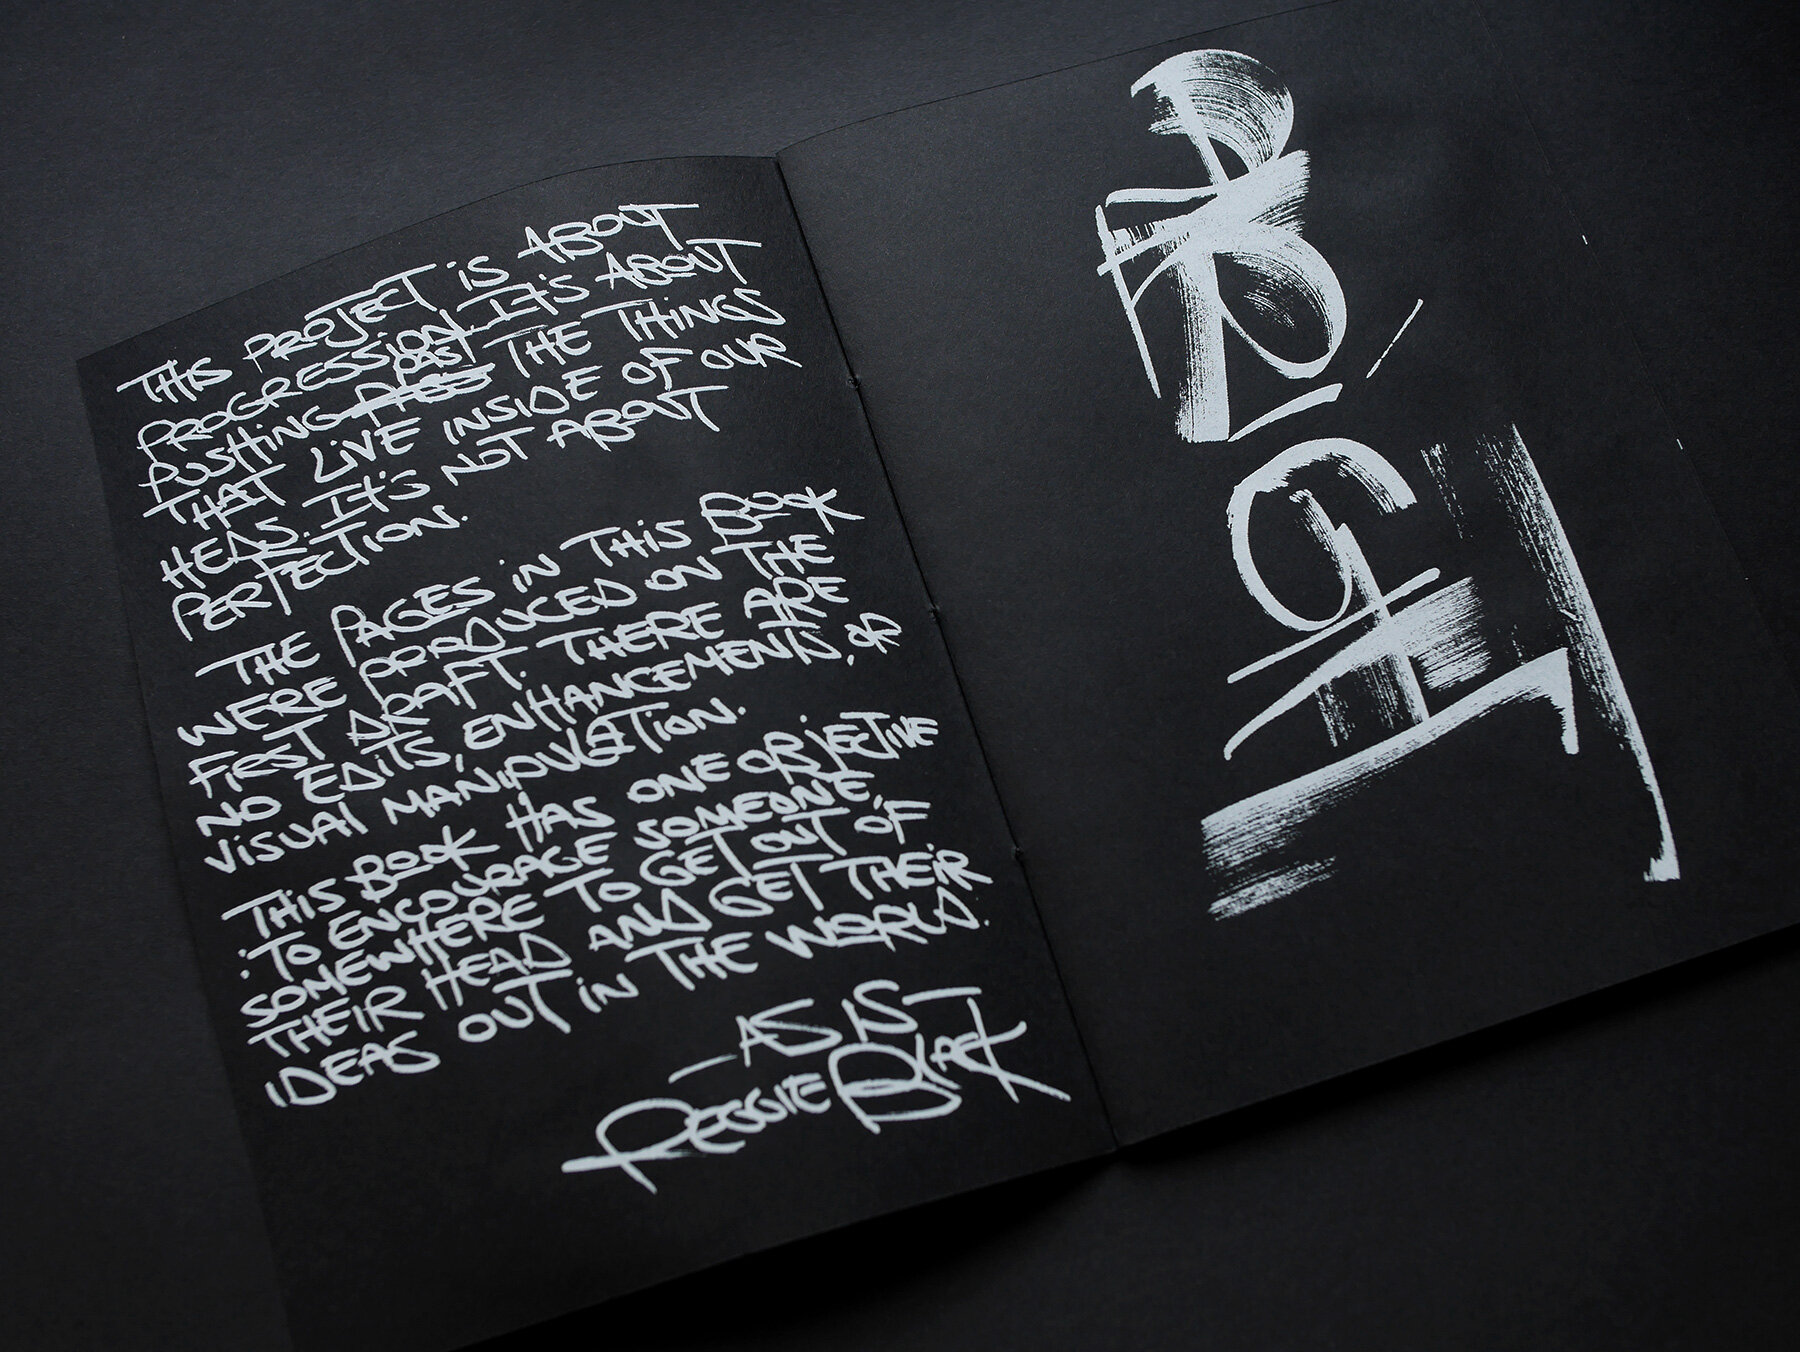 THIS PROJECT IS ABOUT
PROGRESSION. IT'S ABOUT
PUSHING PAST THE THINGS
THAT LIVE INSIDE OF OUR
HEADS. IT'S NOT ABOUT
PERFECTION.
THE PAGES IN THIS BOOK
WERE PRODUCED ON THE
FIRST DRAFT. THERE ARE
NO EDITS, ENHANCEMENTS, OR
VISUAL MANIPULATION.
THIS BOOK HAS ONE OBJECTIVE
: TO ENCOURAGE SOMEONE,
SOMEWHERE TO GET OUT OF
THEIR HEAD AND GET THEIR
IDEAS OUT IN THE WORLD.
_AS IS
REGGIE BLACK